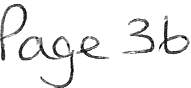 Page 36